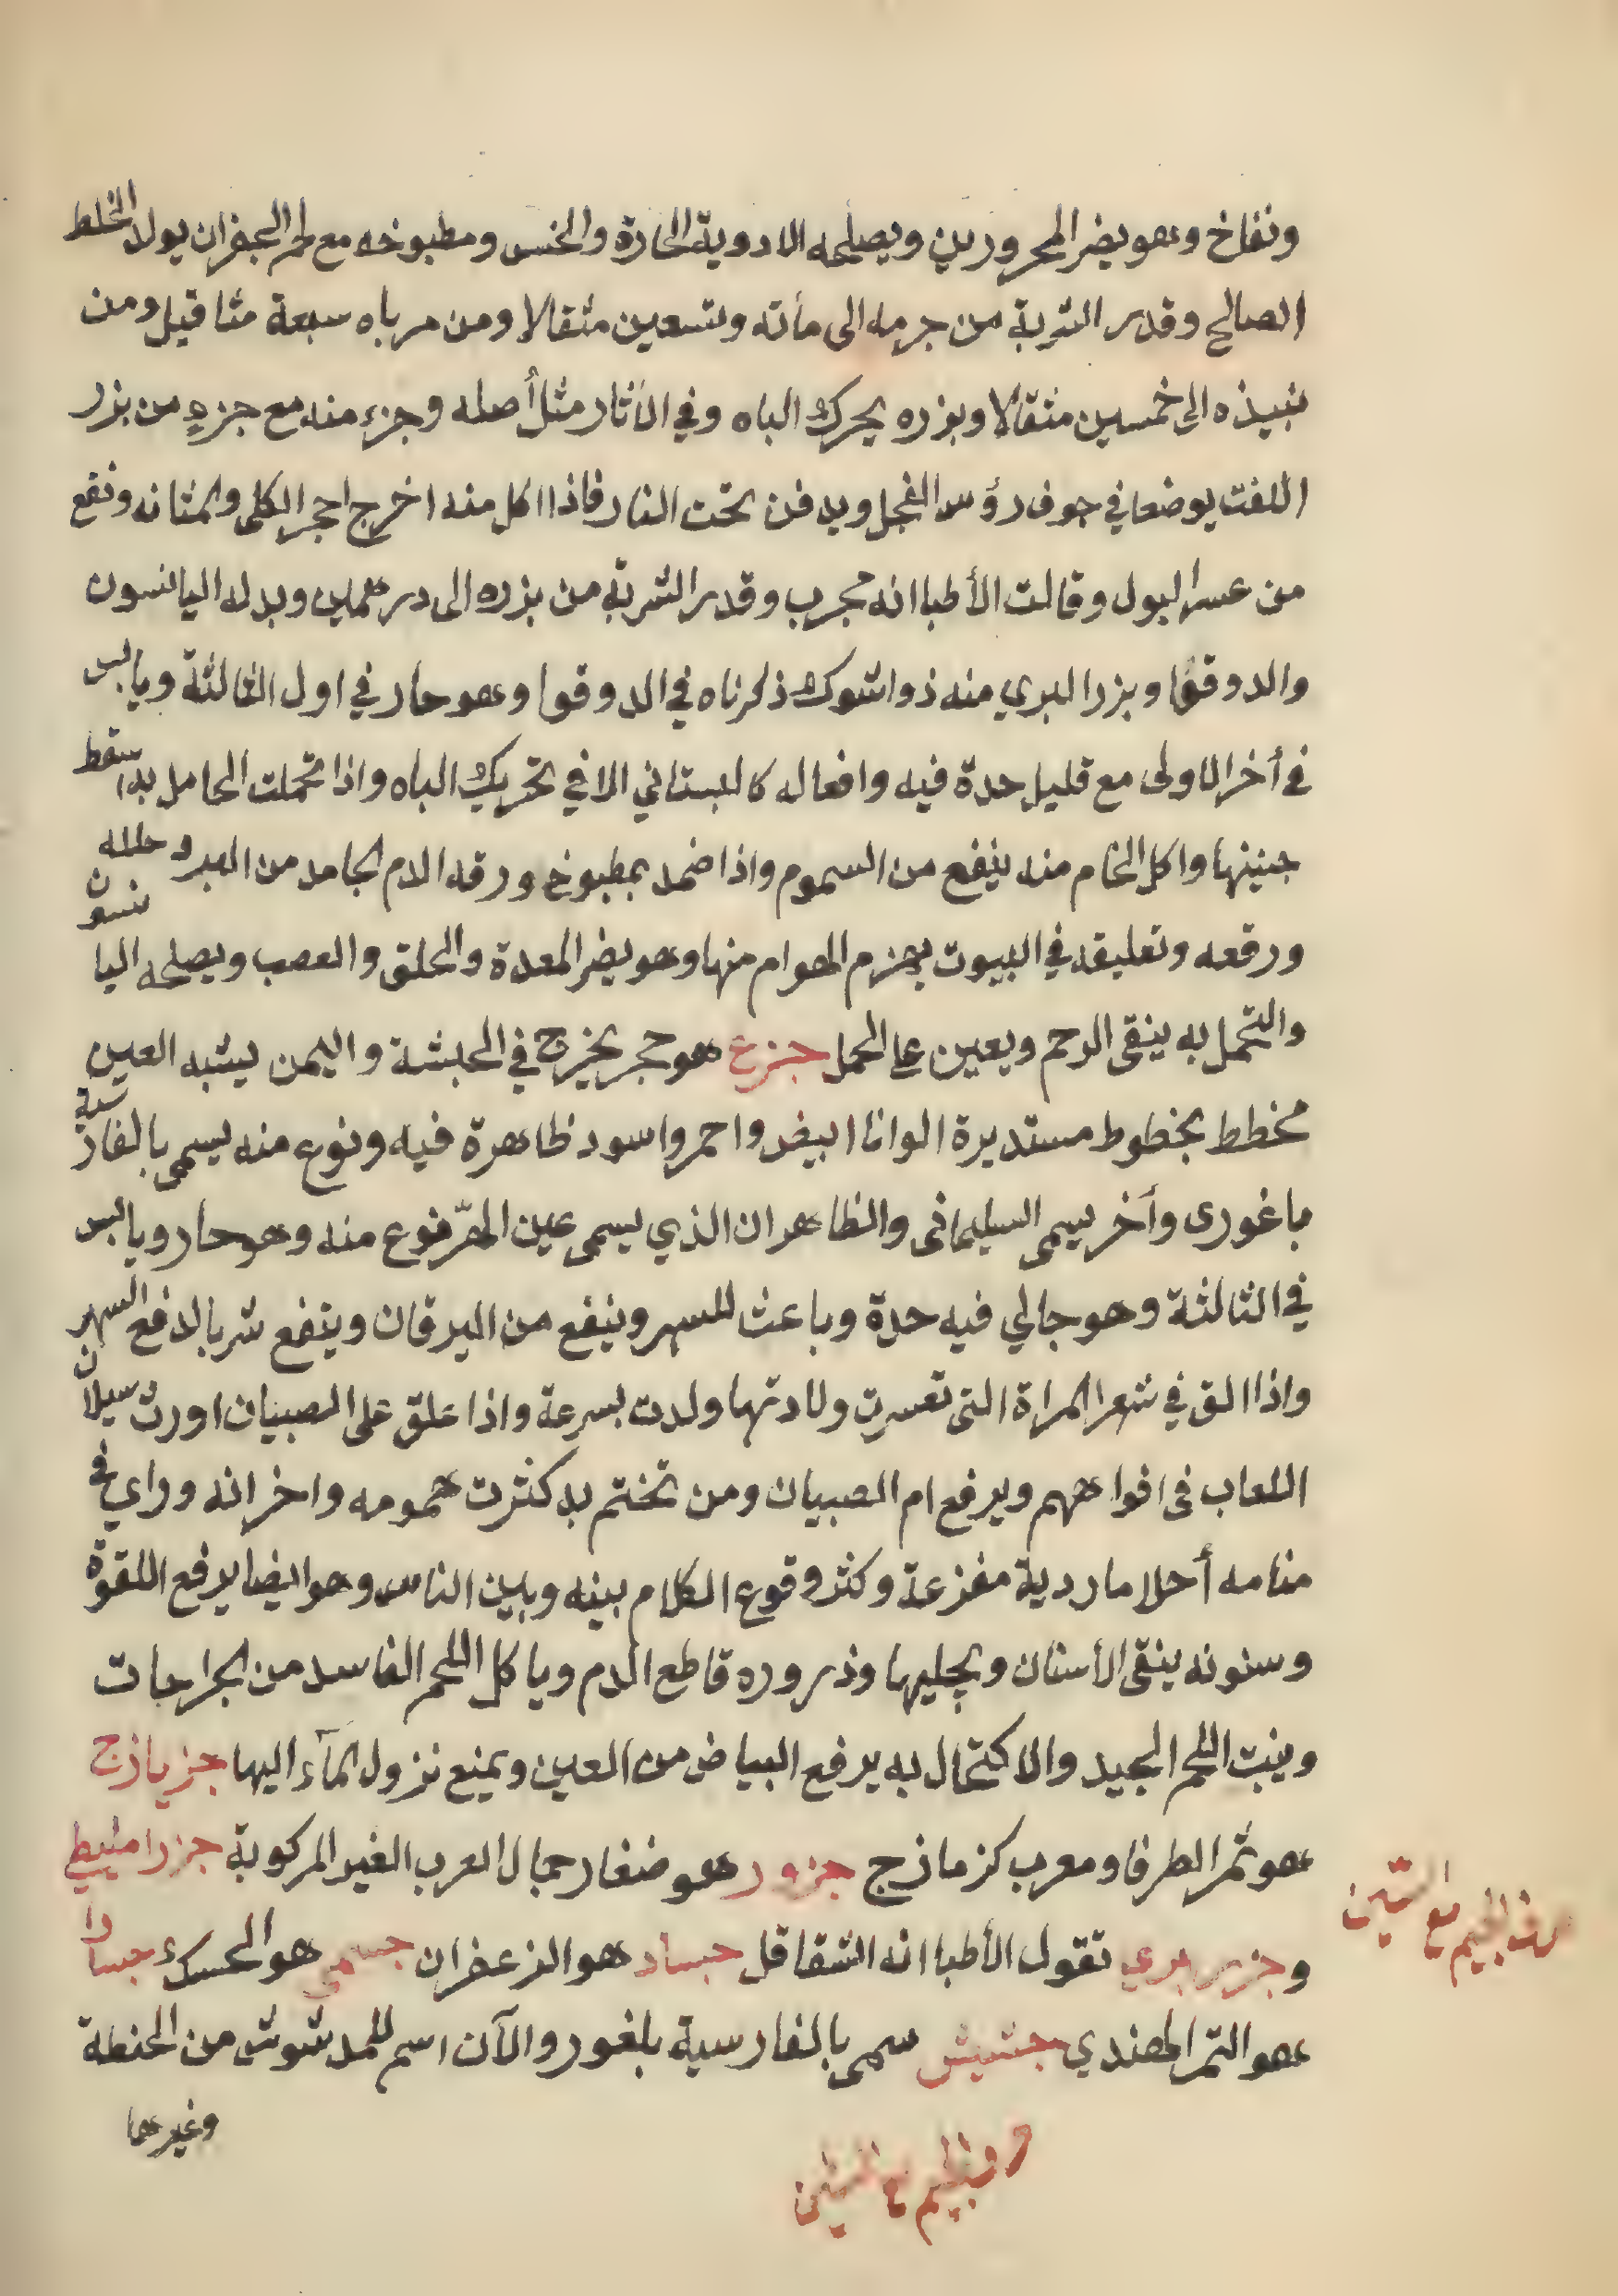 ونفاخ وهو يضر المحرورين ويصلحه الادوية الحارة والخس ومطبوخه مع لحم الجفران يولد الخلط
الصالح وقدر الشربة من جرمه الى مأته وتسعين مثقالا ومن مرباه سبعة مثاقيل ومن
نبيذه الى خمسين مثقالا وبزره يحرك الباه وفي الأثار مثل أصله وجزء منه مع جزءٍ من بزر
اللفت يوضعا في جوف رؤس الفجل ويدفن تحت النار فاذا اكل منه اخرج احجر الكلى والمثانه ونفع
من عسر البول وقالت الأطبا انه مجرب وقدر الشربة من بزره الى درهمين وبدله اليانسون
والدوقوا وبزر البري منه ذوا شوك ذكرناه في الدوقوا وهو حار في اول الثالثة ويابس
في أخر الاولى مع قليل حدة فيه وافعاله كالبستاني الا في تحريك الباه واذا تحملت الحامل به اسقط
جنينها واكل الخام منه ينفع من السموم واذا ضمد بمطبوخ ورقه الدم الجامد من البدن حلله
ورقعه وتعليقه في البيوت يهزم الهوام منها وهو يضر المعدة والحلق والعصب ويصلحه اليانسون
والتحمل به ينقى الرحم ويعين على الحمل جزع هو حجر يخرج في الحبشة واليمن يشبه العين
مخطط بخطوط مستديرة الوانا ابيض واحمر واسود ظاهرة فيه ونوع منه يسمى بالفارسية
باغورى وأخر يسمى السليمانى والظاهر ان الذي يسمى عين الهرّ نوع منه وهو حار ويابس
في الثالثة وهو جالي فيه حدة وباعث للسهر وينفع من اليرقان وينفع شربا لدفع السهر
واذا الق في شعر المراة التى تعسرت ولادتها ولدت بسرعة واذا علق على الصبيان اورث سيلان
اللعاب فى افواههم ويرفع ام الصبيان ومن تختم به كثرت همومه واحزانه وراي في
منامه أحلاما ردية مفزعة وكثر وقوع الكلام بينه وبين الناس وهو ايضا يرفع اللقوة
وسنونه ينقى الأسنان ويجليها وذروره قاطع الدم وياكل اللحم الفاسد من الجراحات
وينبت اللحم الجيد والاكتحال به يرفع البياض من العين ويمنع نزول المآء اليها جزيازج
هو ثمر الطرفا ومعرب كزمازج جزور هو ضغار جمال العرب الغير المركوبة جزر امليطي
وجزر بري تقول الأطبا انه الشقاقل جساد هو الزعفران جسمي هو الحسك جسادا
هو التمر الهندي جشيش سمى بالفارسية بلغور والآن اسم للمدشوش من الحنطة
وغيرها
حرف الجيم مع الشين
حرف الجيم مع السّين